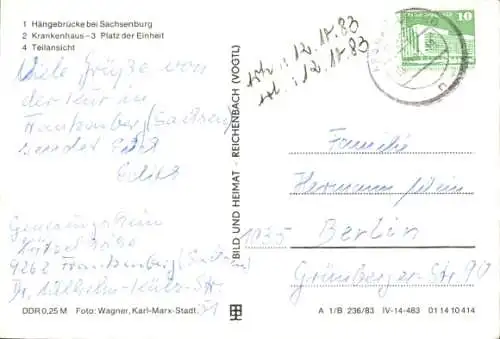 1 Hängebrücke bei Sachsenburg
2 Krankenhaus – 3 Platz der Einheit
4 Teilansicht
Viele Grüße von
der Kur in
Frankenberg/Sachsen
sendet Euch
Edith
Genesungsheim
Lützelhöhe
9262 Frankenberg/Sachsen
Dr. Wilhelm-Külz-Str.
51
DDR 0,25 M Foto: Wagner, Karl-Marx-Stadt
BILD UND HEIMAT · REICHENBACH (VOGTL)
erh.: 12.11.83
erl.: 12.11.83
10
Familie
Hermann
1035 Berlin
Grünberger-Str. 90
A 1/B 236/83 IV-14-483 01 14 10 414